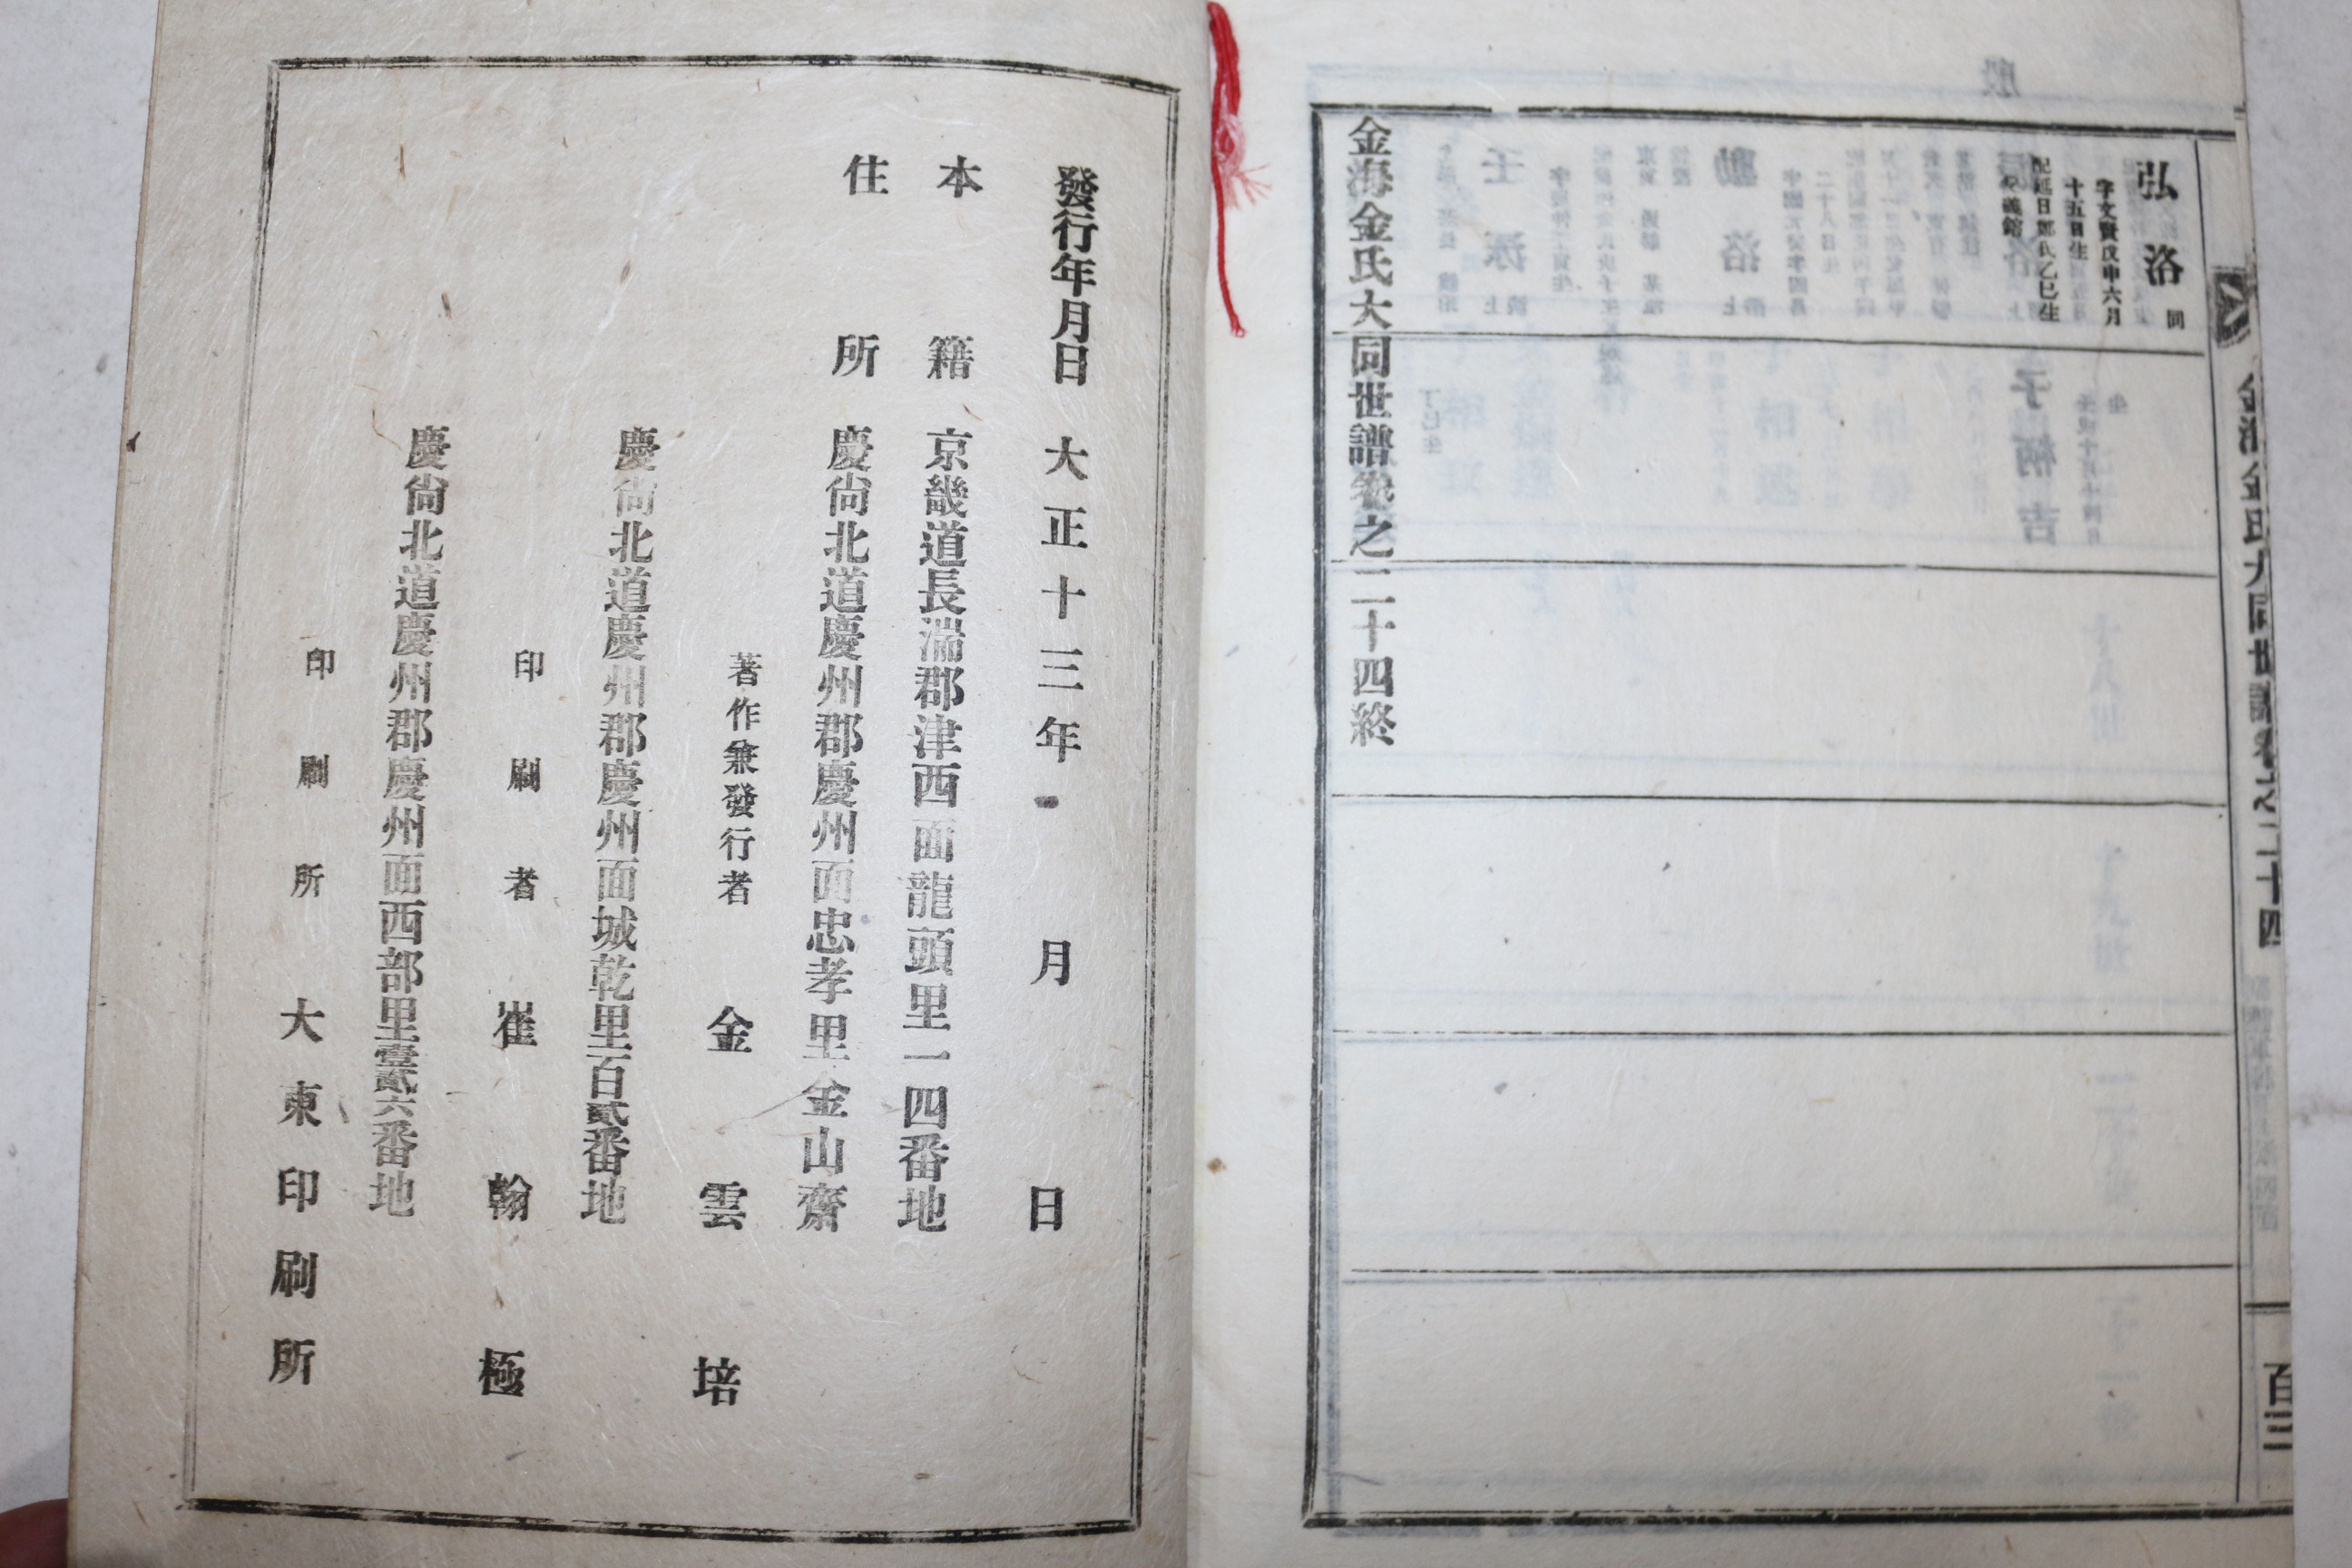 弘洛 同
字文賢戊申六月
十五日生
配延日鄭氏乙巳生
子 柄吉
金海金氏大同世譜卷之二十四終
金海金氏大同世譜卷之二十四
百三
發行年月日 大正十三年 月 日
本籍 京畿道長湍郡津西面龍頭里一四番地
住所 慶尙北道慶州郡慶州面忠孝里金山齋
著作兼發行者 金雲培
慶尙北道慶州郡慶州面城乾里百貳番地
印刷者 崔翰極
慶尙北道慶州郡慶州面西部里壹貳六番地
印刷所 大東印刷所